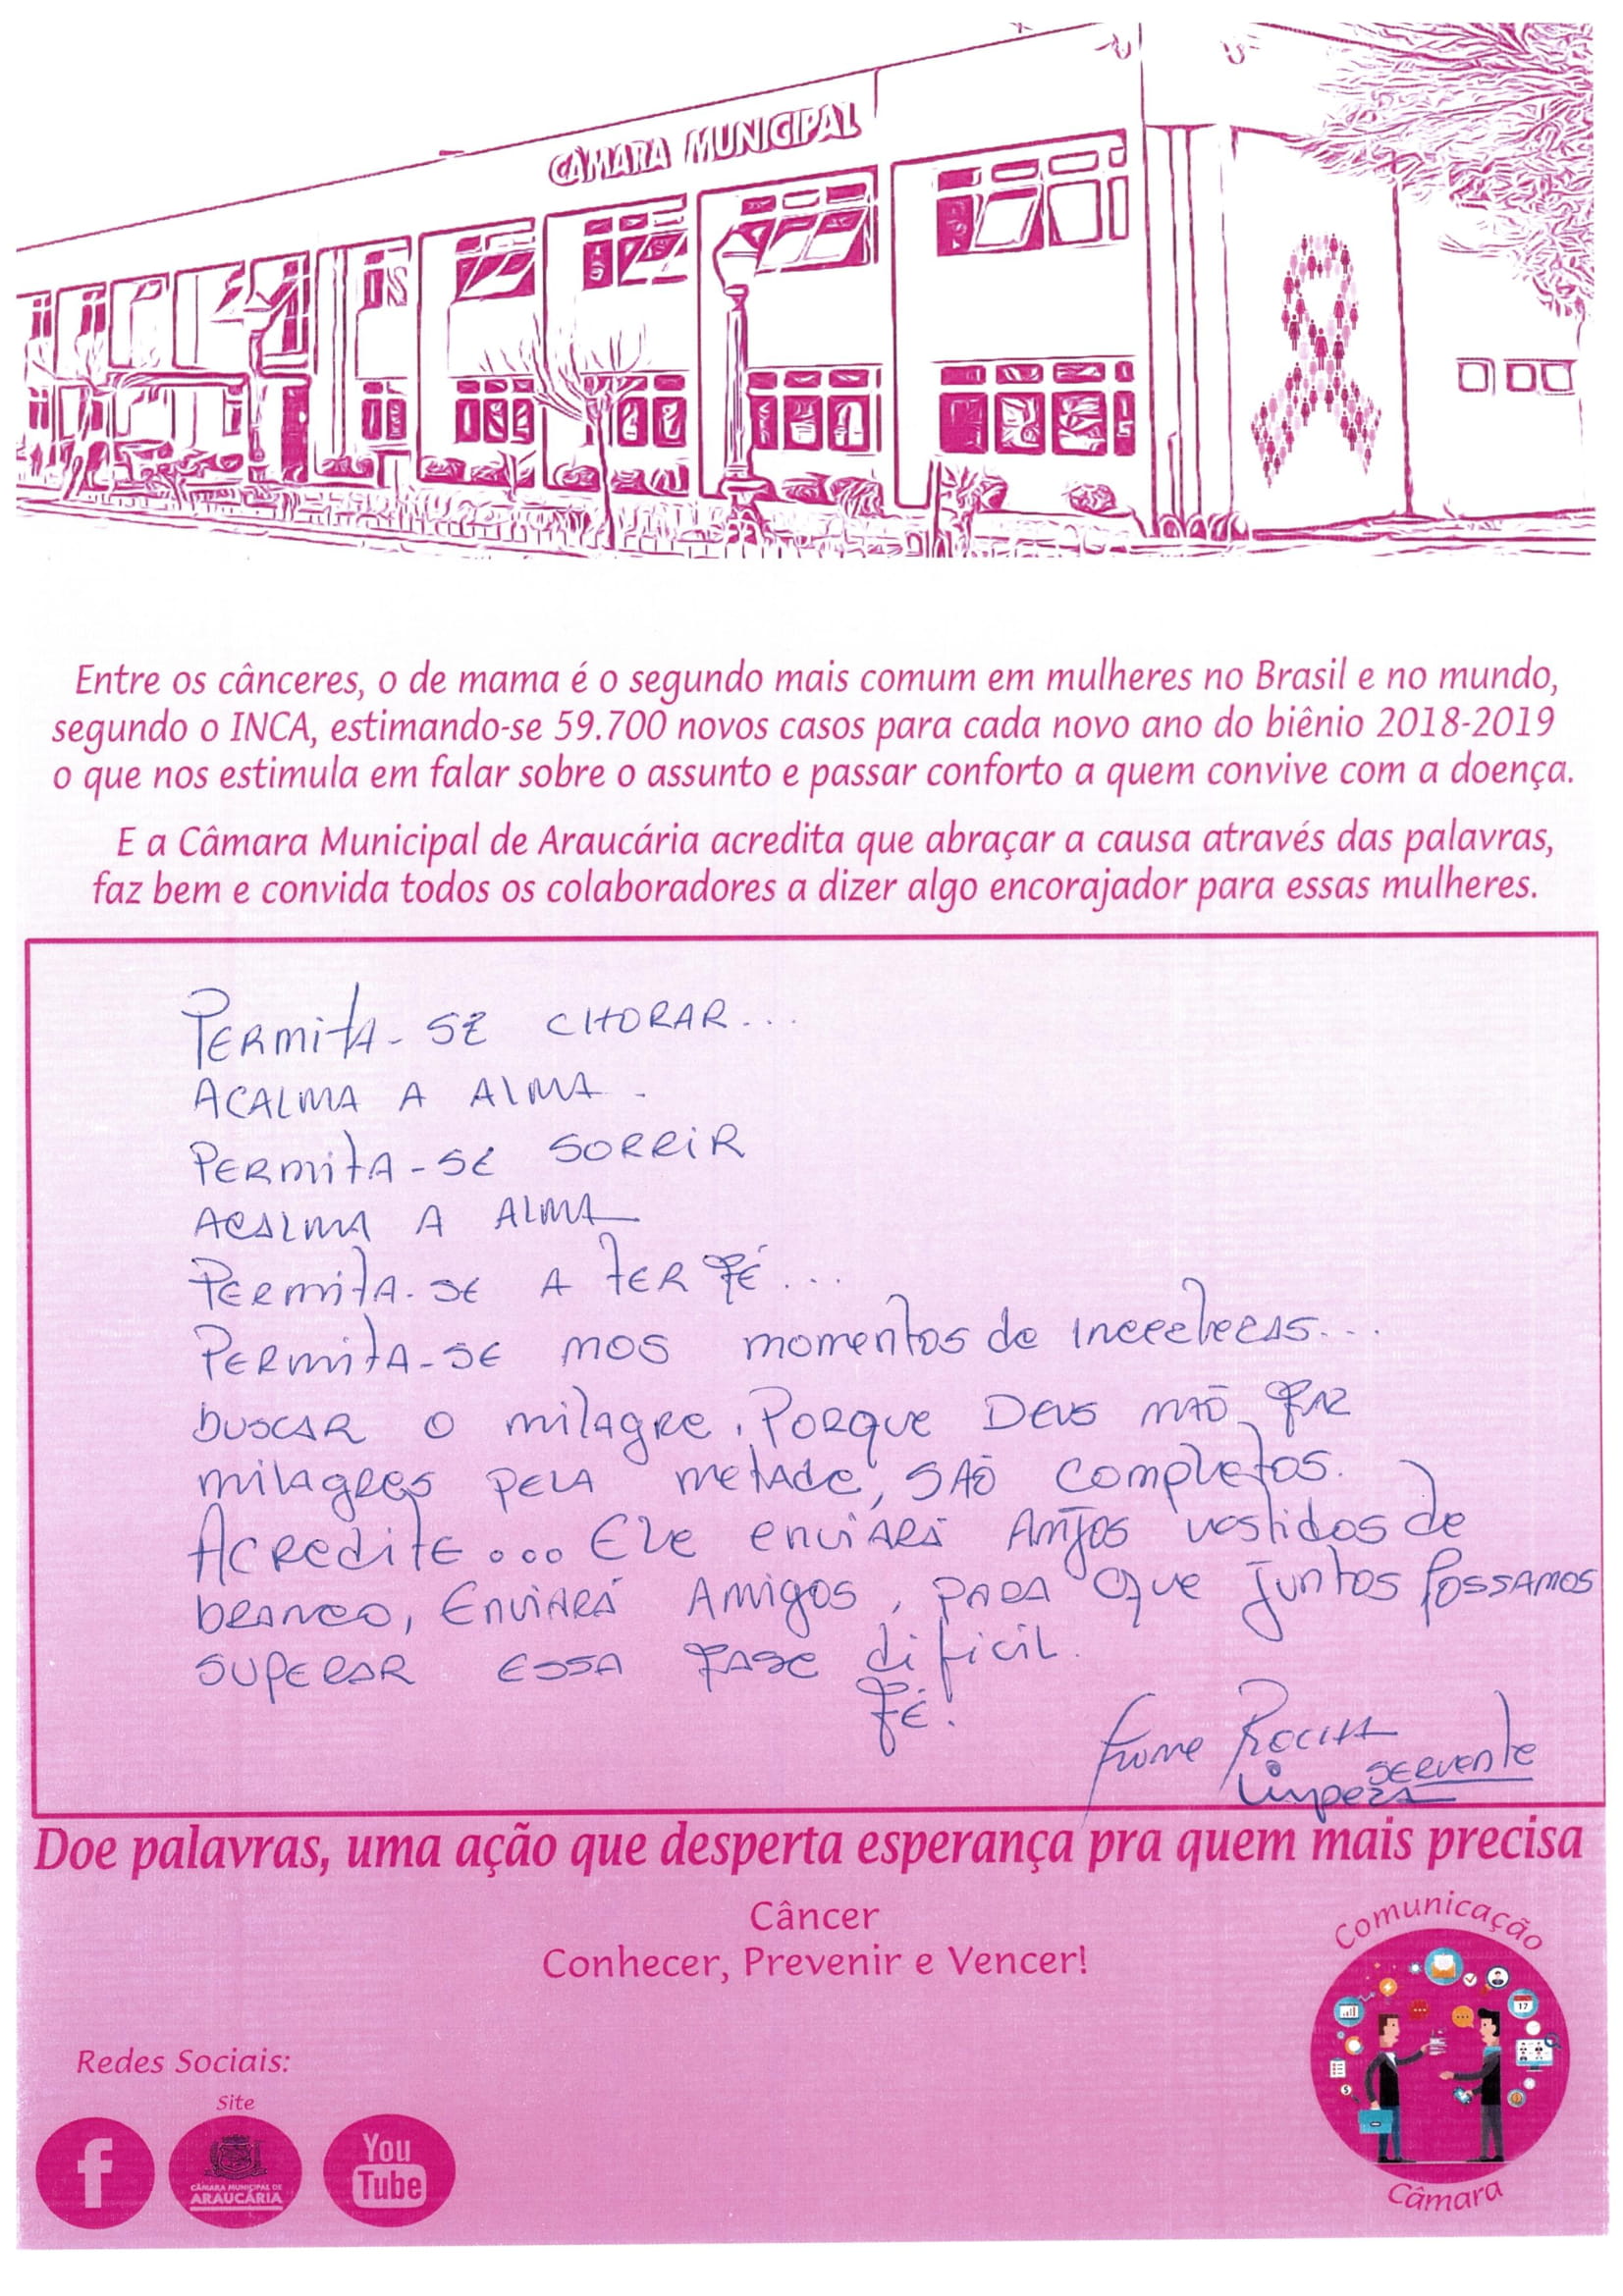 CÂMARA MUNICIPAL
Entre os cânceres, o de mama é o segundo mais comum em mulheres no Brasil e no mundo,
segundo o INCA, estimando-se 59.700 novos casos para cada novo ano do biênio 2018-2019
o que nos estimula em falar sobre o assunto e passar conforto a quem convive com a doença.
E a Câmara Municipal de Araucária acredita que abraçar a causa através das palavras,
faz bem e convida todos os colaboradores a dizer algo encorajador para essas mulheres.
PERMITA-SE CHORAR...
ACALMA A ALMA.
PERMITA-SE SORRIR
ACALMA A ALMA
PERMITA-SE A TER FÉ...
PERMITA-SE NOS momentos de incertezas...
buscar o milagre. Porque Deus não faz
milagres pela metade, são completos.
Acredite... Ele enviará Anjos vestidos de
branco, Enviará Amigos, para que juntos possamos
superar essa fase dificil.
FÉ!
Rocha
servente
Limpeza
Doe palavras, uma ação que desperta esperança pra quem mais precisa
Câncer
Conhecer, Prevenir e Vencer!
Comunicação
17
Câmara
Redes Sociais:
Site
f
CÂMARA MUNICIPAL DE
ARAUCÁRIA
You
Tube